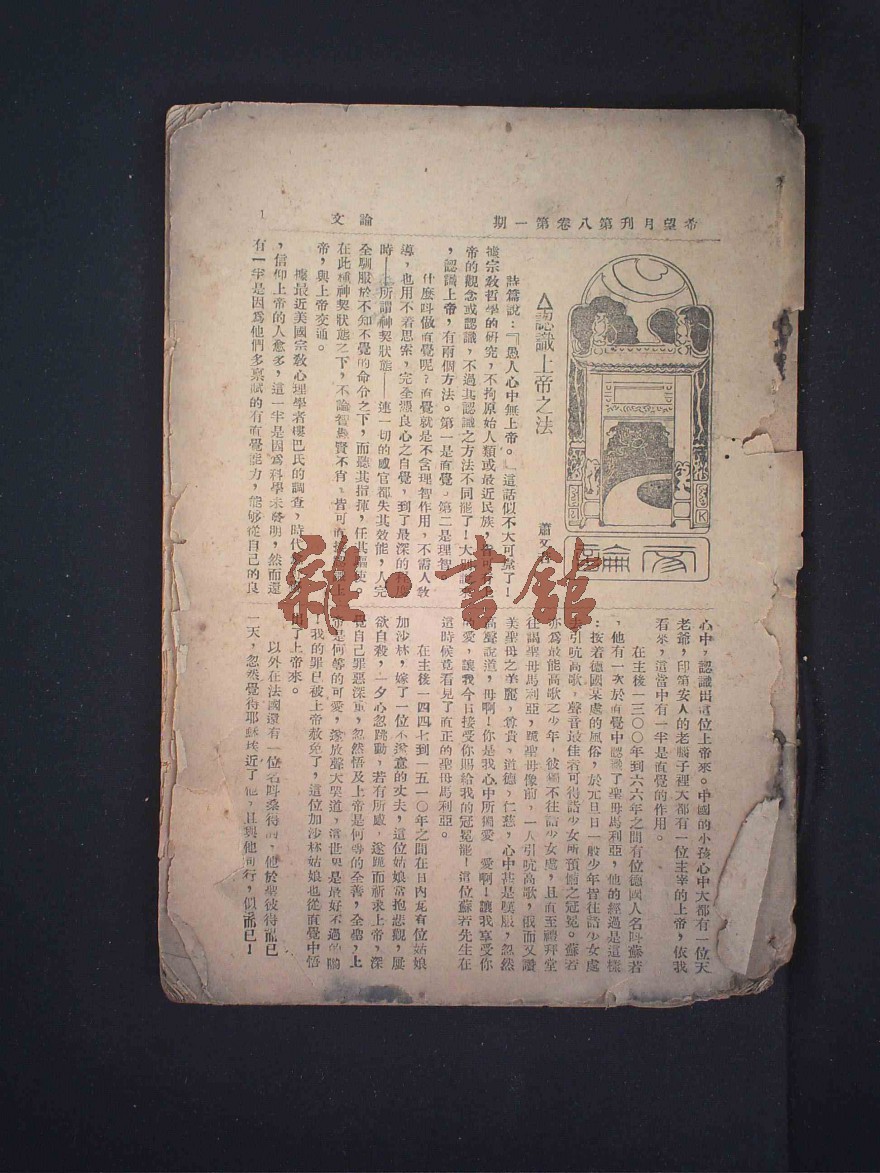 希望月刊第八卷第一期
論文
1
論文
△認識上帝之法
蕭
詩篇說：『愚人心中無上帝。』這話似不大可靠了！
據宗敎哲學的研究，不拘原始人類或最近民族，皆可有上
帝的觀念或認識，不過其認識之方法不同罷了！大
，認識上帝，有兩個方法。第一是直覺。第二是理智
什麼叫做直覺呢？直覺就是不含理智作用，不需人敎
導，也用不着思索，完全憑良心之自覺，到了最深的
時——所謂神契狀態——連一切的感官都失其效能，人完
全馴服於不知不覺的命分之下，而聽其指揮，任其驅使。
在此種神契狀態之下，不論智愚賢不肖，皆可直 上
帝，與上帝交通。
據最近美國宗敎心理學者樓巴氏的調查，時代
，信仰上帝的人愈多，這一半是因爲科學未啓明，然而還
有一半是因爲他們多禀賦的有直覺能力，能够從自己的良
心中，認識出這位上帝來。中國的小孩心中大都有一位天
老爺，印第安人的老腦子裡大都有一位主宰的上帝，依我
看來，這當中有一半是直覺的作用。
在主後一三〇〇年到六六年之間有位德國人名叫蘇若
，他有一次於直覺中認識了聖母馬利亞，他的經過是這樣
：按着德國某處的風俗，於元旦日一般少年皆往詣少女處
引吭高歌，聲音最佳者可得詣少女所預備之冠冕。蘇若
亦爲最能高歌之少年，彼獨不往詣少女處，且直至禮拜堂
往謁聖母馬利亞，跪聖母像前，一人引吭高歌，俄而又讚
美聖母之美麗，尊貴，道德，仁慈，心中甚是嘆服，忽然
高聲說道，母啊！你是我心中所獨愛 愛啊！讓我享受你
的愛，讓我今日接受你賜給我的冠冕罷！這位蘇若先生在
這時候竟看見了眞正的聖母馬利亞。
在主後一四四七到一五一〇年之間在日內瓦有位姑娘
加沙林，嫁了一位不遂意的丈夫，這位姑娘常抱悲觀，屢
欲自殺，一夕心忽跳動，若有所感，遂跪而祈求上帝，深
覺自己罪惡深重，忽然悟及上帝是何等的全善，全備，上
帝是何等的可愛，遂放聲大哭道，這世界是最好不過的
！我的罪已被上帝赦免了，這位加沙林姑娘也從直覺中悟
出了上帝來。
以外在法國還有一位名叫桑得 ，他於聖彼得
一天，忽然覺得耶穌挨近了他，且與他同行，似 ！
雜·書館